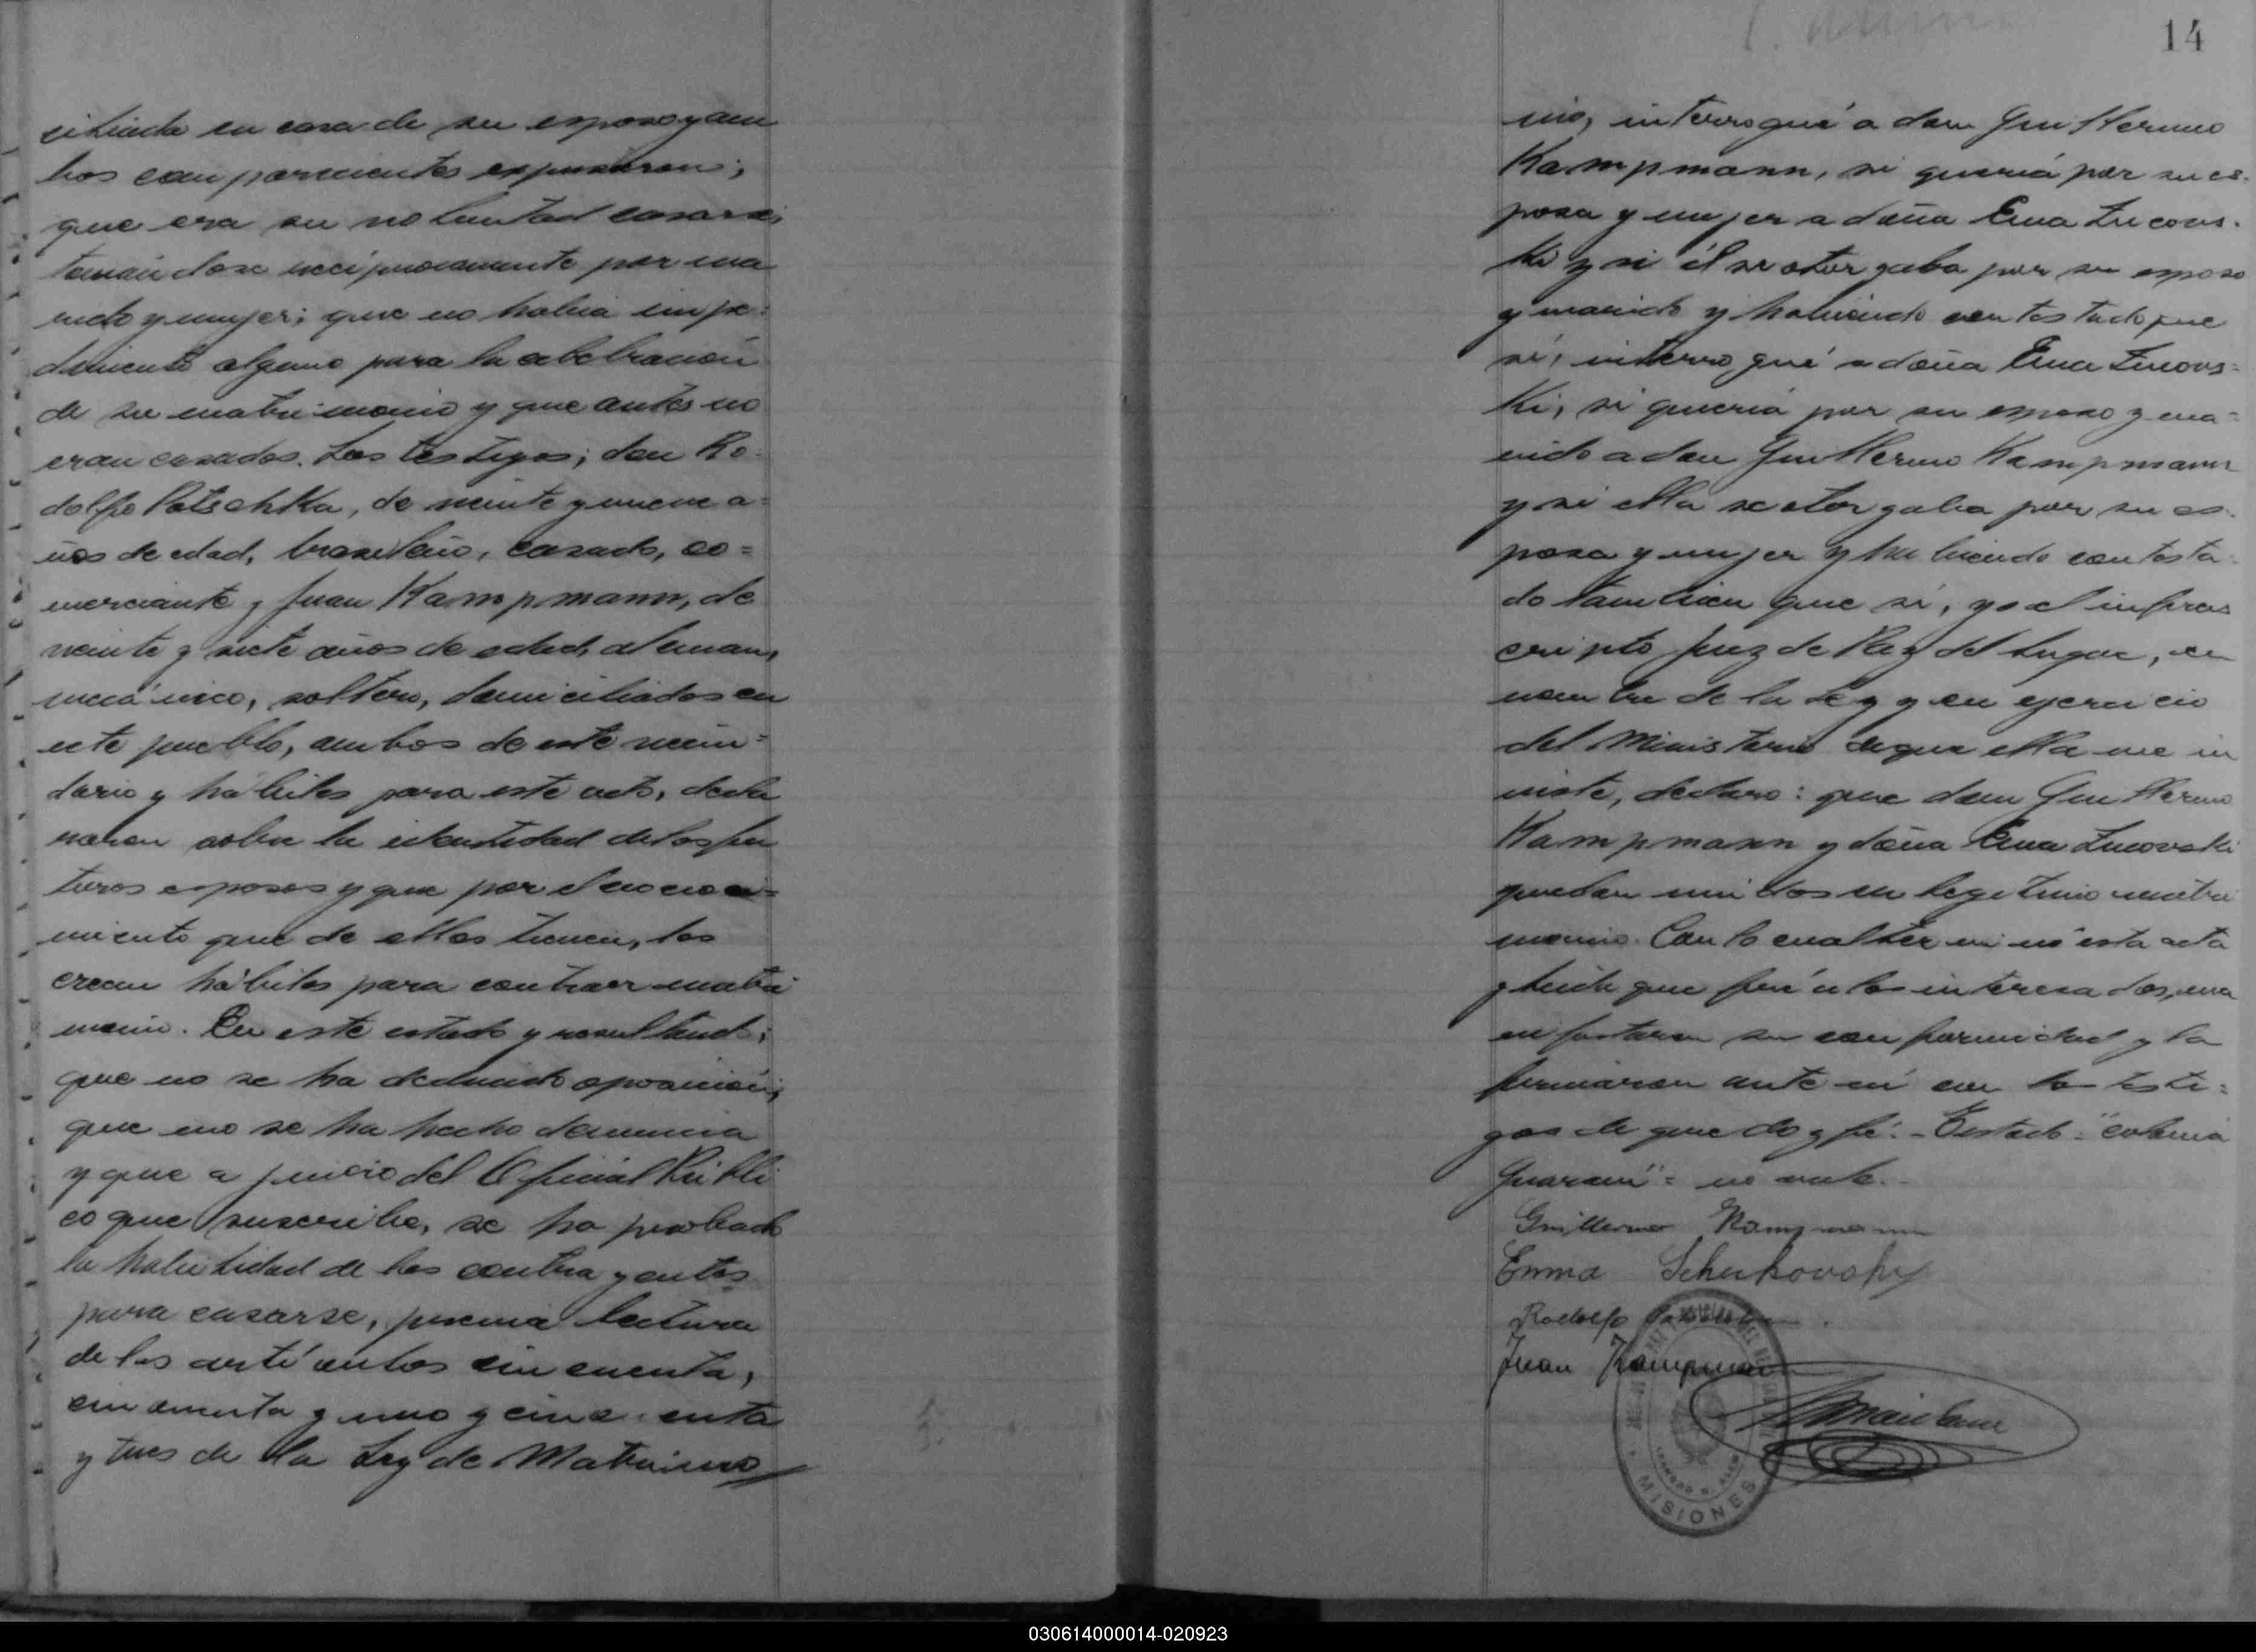 ciliada en casa de su esposo y am
bos comparecientes expusieron;
que era su voluntad casarse,
tomándose recíprocamente por ma
rido y mujer; que no habia impe=
dimento alguno para la celebracion
de su matrimonio y que antes no
eran casados. Los testigos; don Ro-
dolfo Patschka, de veinte y nueve a=
ños de edad, brasileño, casado, co=
merciante y Juan Kampmann, de
veinte y siete años de edad, aleman,
mecánico, soltero, domiciliados en
este pueblo, ambos de este vecin=
dario y hábiles para este acto, decla
raron sobre la identidad de los fu
turos esposos y que por el conoci=
miento que de ellos tienen, los
creen hábiles para contraer matri
monio. En este estado y resultando;
que no se ha deducido oposicion;
que no se ha hecho denuncia
y que a juicio del Oficial Públi
co que suscribe, se ha probado
la habilidad de los contrayentes
para casarse, previa lectura
de los artículos cincuenta,
cincuenta y uno y cincuenta
y tres de la Ley de Matrimo
14
nio, interrogué a don Guillermo
Kampmann, si queria por su es-
posa y mujer a doña Ema Zucovs-
ki y si él se otorgaba por su esposo
y marido y habiendo contestado que
sí, interrogué a doña Ema Zucovs=
ki, si queria por su esposo y ma=
rido a don Guillermo Kampmann
y si ella se otorgaba por su es-
posa y mujer y habiendo contesta
do tambien que sí, yo el infras
cripto Juez de Paz del Lugar, en
nombre de la Ley y en ejercicio
del Ministerio de que ella me in
viste, declaro: que don Guillermo
Kampmann y doña Ema Zucovski
quedan unidos en legítimo matri
monio. Con lo cual terminó esta acta
y leida que fué a los interesados, ma
nifestaron su conformidad y la
firmaron ante mí con los testi=
gos de que doy fé.- Testado: "colonia
Guaraní"= no vale.-
Guillermo Kampmann
Emma Scherkovsky
Rodolfo
Juan Kampmann
MISIONES
030614000014-020923